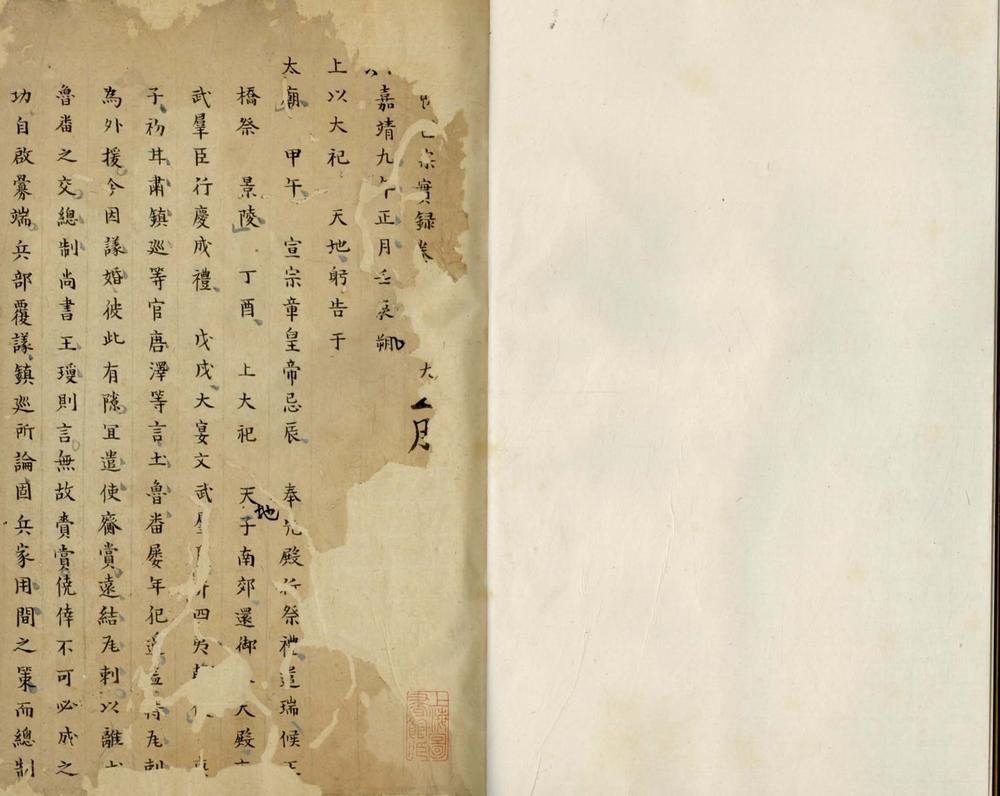 宗實録卷 大
月
嘉靖九年正月壬辰朔
上以大祀 天地躬告于
太廟 甲午 宣宗章皇帝忌辰 奉先殿行祭禮遣瑞候
橋祭 景陵 丁酉 上大祀 天地于南郊還御 天殿
武羣臣行慶成禮 戊戌大宴文武羣 四夷
子初甘肅鎮廵等官唐澤等言土魯番屡年犯 恃瓦剌
為外援今因議婚彼此有隙宜遣使齎賞遠結瓦剌以離
魯番之交總制尚書王瓊則言無故賫賞僥倖不可必成之
功自啟釁端兵部覆議鎮廵所論固兵家用間之策而總制
上海圖書館